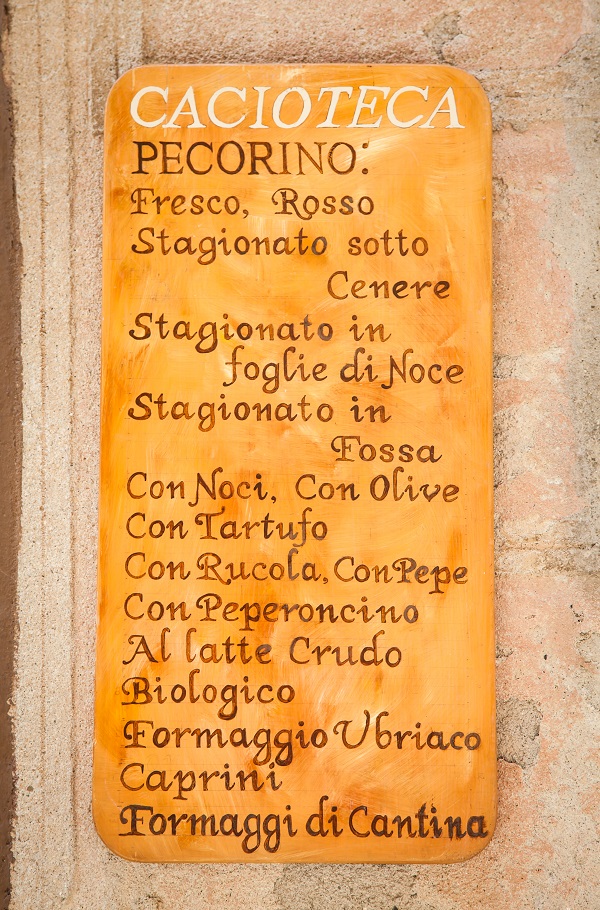 CACIOTECA
PECORINO:
Fresco, Rosso
Stagionato sotto
Cenere
Stagionato in
foglie di Noce
Stagionato in
Fossa
Con Noci, Con Olive
Con Tartufo
Con Rucola, Con Pepe
Con Peperoncino
Al latte Crudo
Biologico
Formaggio Ubriaco
Caprini
Formaggi di Cantina